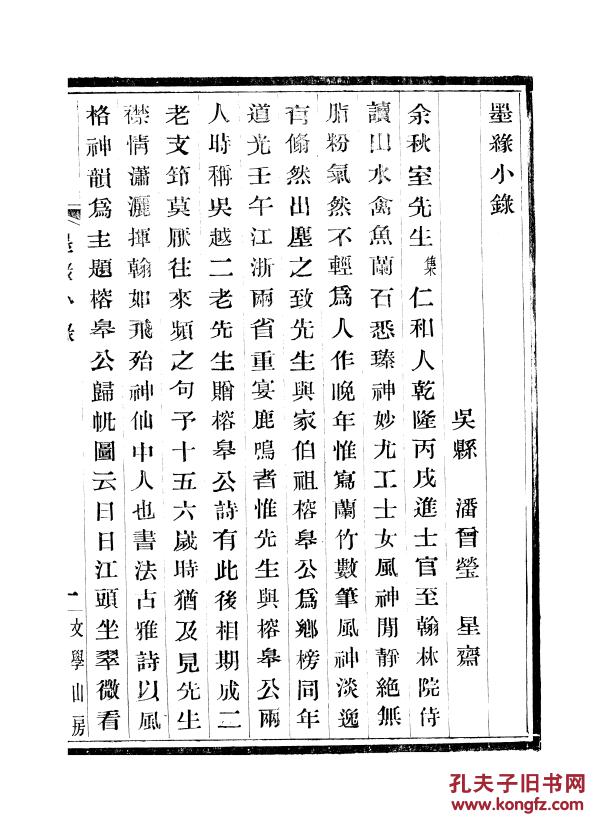 墨緣小錄
吳縣 潘曾瑩 星齋
余秋室先生集仁和人乾隆丙戌進士官至翰林院侍
讀山水禽魚蘭石悉臻神妙尤工士女風神閒靜絕無
脂粉氣然不輕為人作晚年惟寫蘭竹數筆風神淡逸
有翛然出塵之致先生與家伯祖榕皋公為鄉榜同年
道光壬午江浙兩省重宴鹿鳴者惟先生與榕皋公兩
人時稱吳越二老先生贈榕皋公詩有此後相期成二
老支筇莫厭往來頻之句予十五六歲時猶及見先生
襟情瀟灑揮翰如飛殆神仙中人也書法古雅詩以風
格神韻為主題榕皋公歸帆圖云日日江頭坐翠微看
墨緣小錄
一
文學山房
孔夫子旧书网
www.kongfz.com